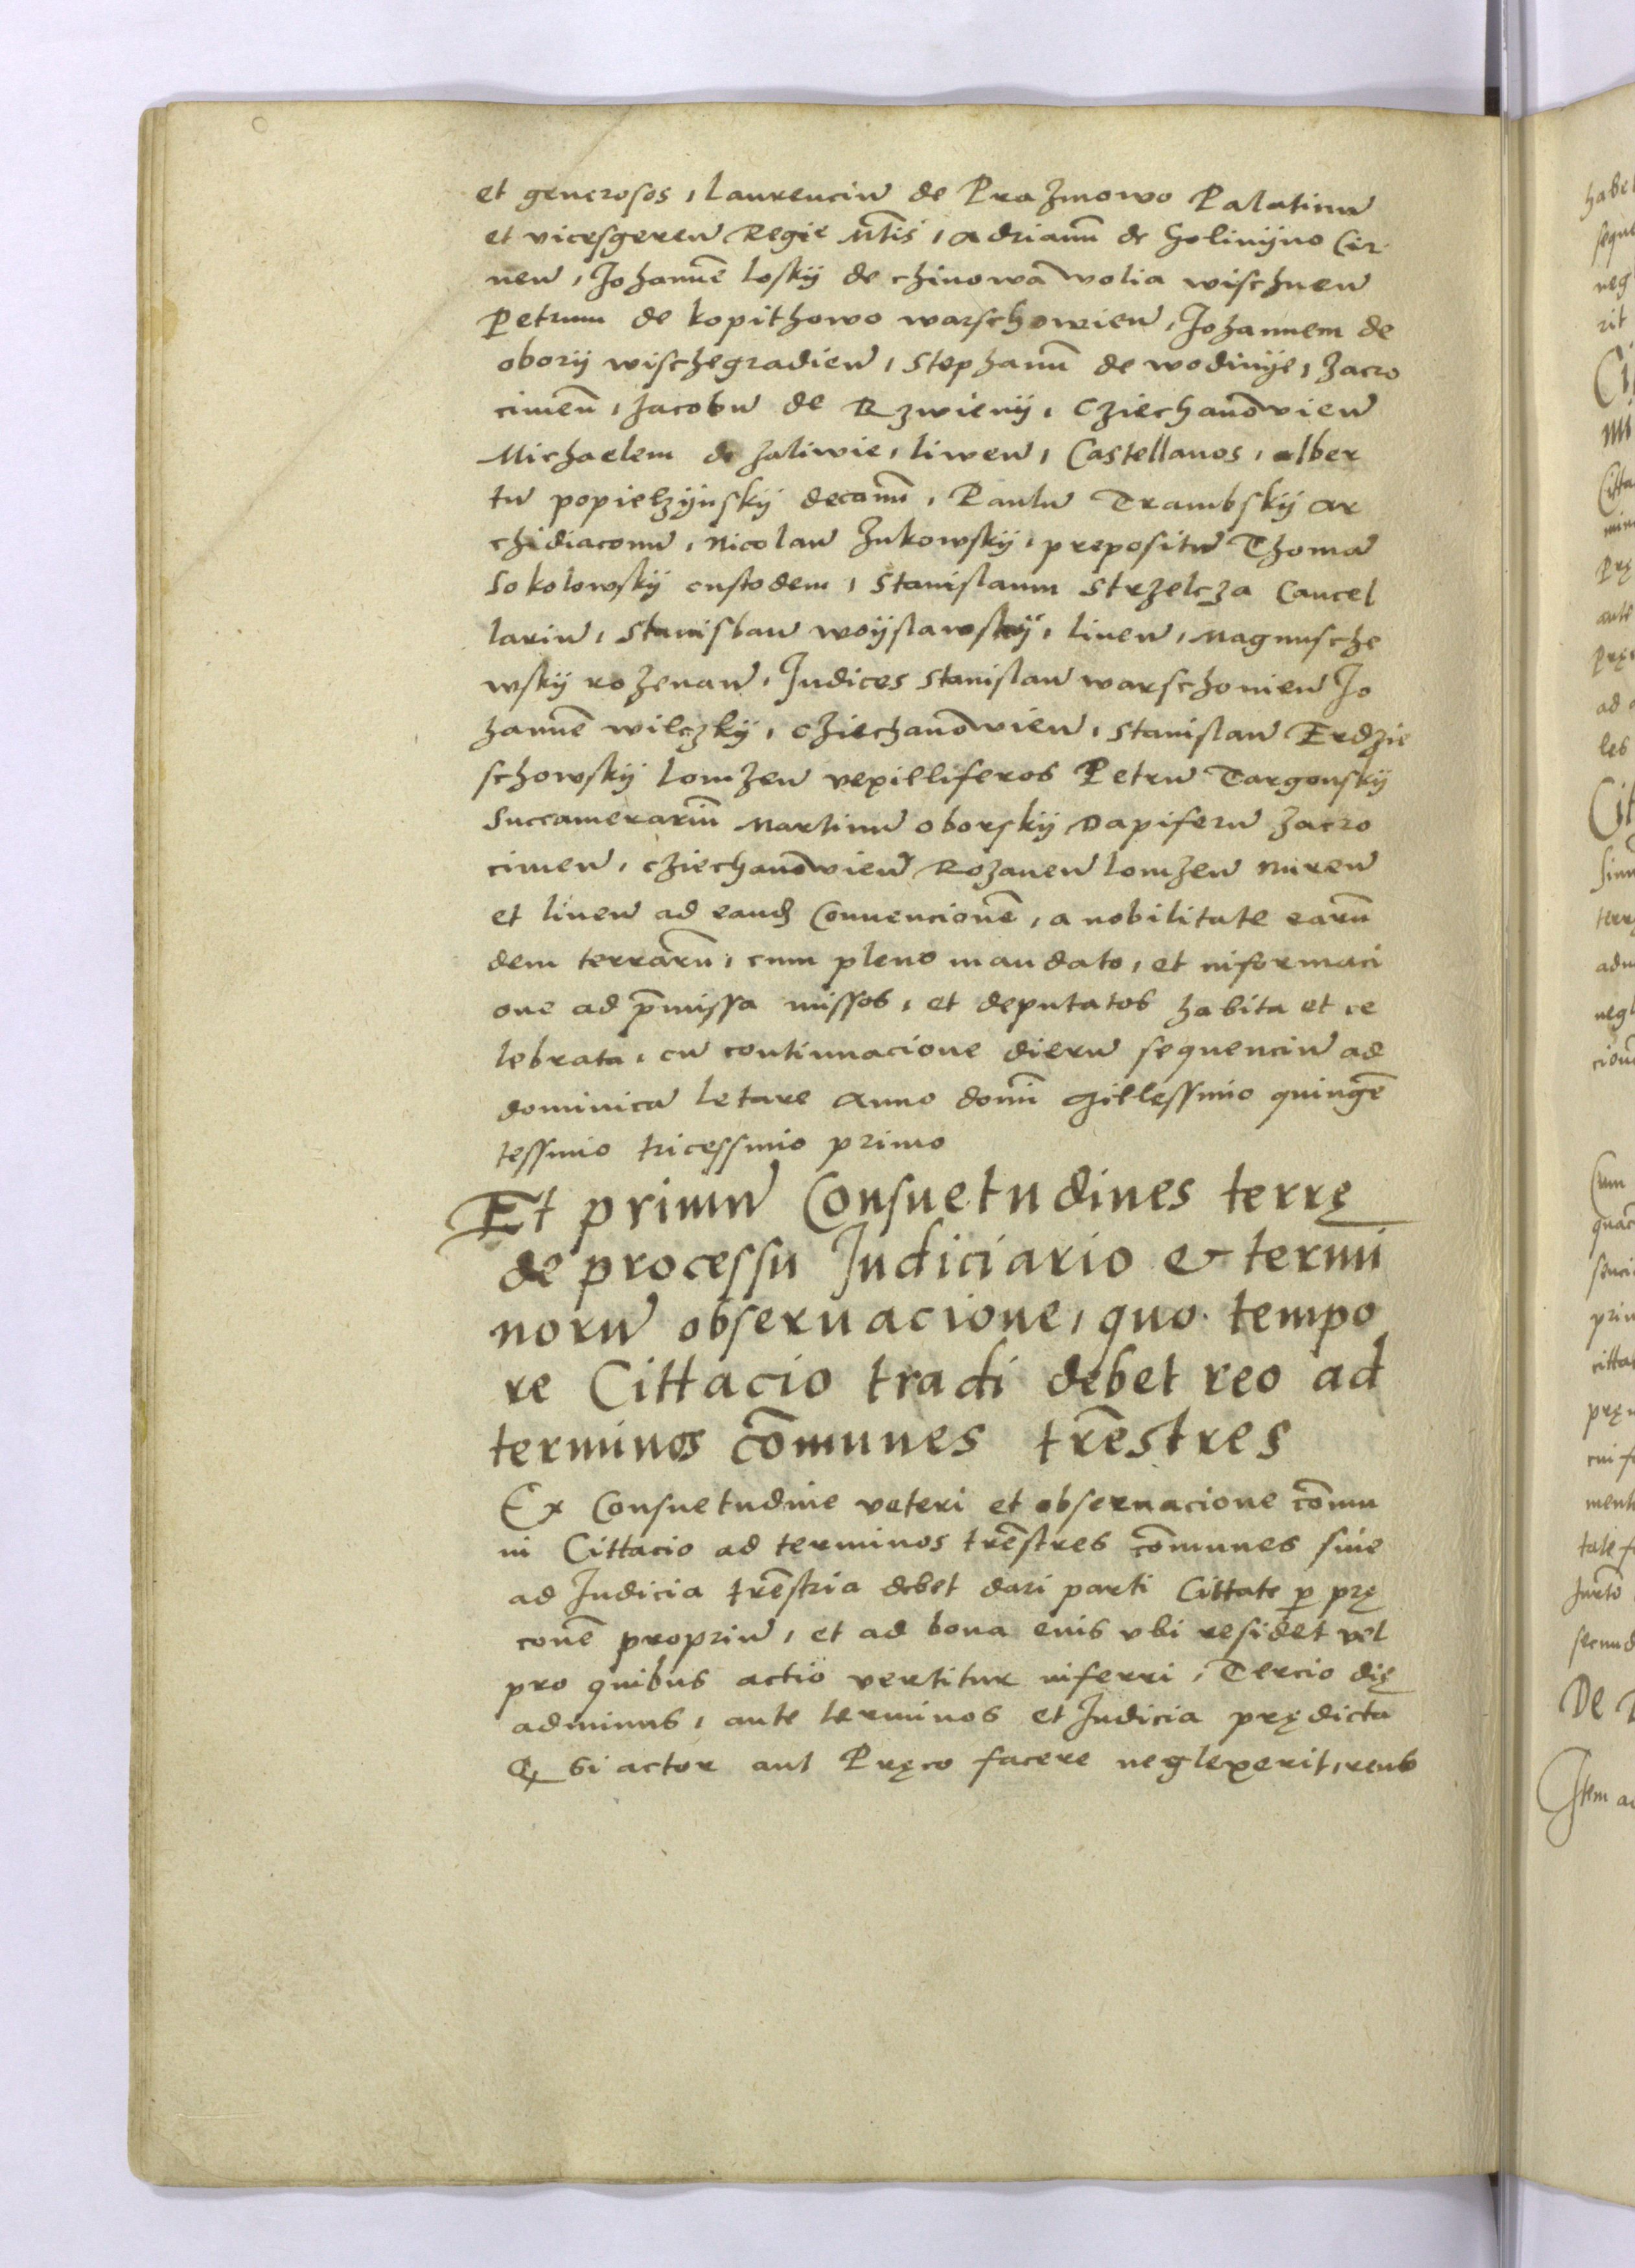 et generosos, laurenciu de Prazmowo Palatinu
et vicesgeren Regie Mtis, Adrianu de Golinyno Cir
nen, Johanne losky de chinowa wolia wischnen
Petrum de kopithowo warschowien, Johannem de
obory wischegradien, Stephanu de wodinye, zacro
cimen, Jacobu de Rzwieny, Cziechanowien
Michaelem de zaliwie, liwen, Castellanos, alber
tu popielzynsky decanu, Paulu Trambsky Ar
chidiaconu, Nicolau Zukowsky, prepositu Thoma
Sokolowsky custodem, Stanislaum Strzelcza Cancel
lariu, Stanislau woyslawsky, liuen, Magnusche
wsky rozenan, Judices Stanislau warschouien Jo
hanne wilczky, Cziechanowien, Stanislau Erdzie
schowsky lomzen vexilliferos Petru Targonsky
Succamerariu Martinu oborsky Dapiferu zacro
cimen, cziechanowien Rozanen lomzen Nuren
et liuen ad eand Conuencione, a nobilitate earu
dem terraru, cum pleno mandato, et informaci
one ad pmissa missos, et deputatos habita et ce
lebrata, cu continuacione dieru sequenciu ad
dominica letare Anno domi Millessimo quinge
tessimo tricessimo primo
Et primu Consuetudines terrę
de processu Judiciario & termi
noru obseruacione, quo tempo
re Cittacio tradi debet reo ad
terminos cōmunes trēstres
Ex Consuetudine veteri et obseruacione cōmu
ni Cittacio ad terminos trēstres cōmunes siue
ad Judicia trēstria debet dari parti Cittate p prę
conē propriu, et ad bona eius vbi residet vel
pro quibus actio vertitur inferri, Tercio dię
adminus, ante terminos et Judicia prędicta
Q si actor aut Pręco facere neglexerit, reus